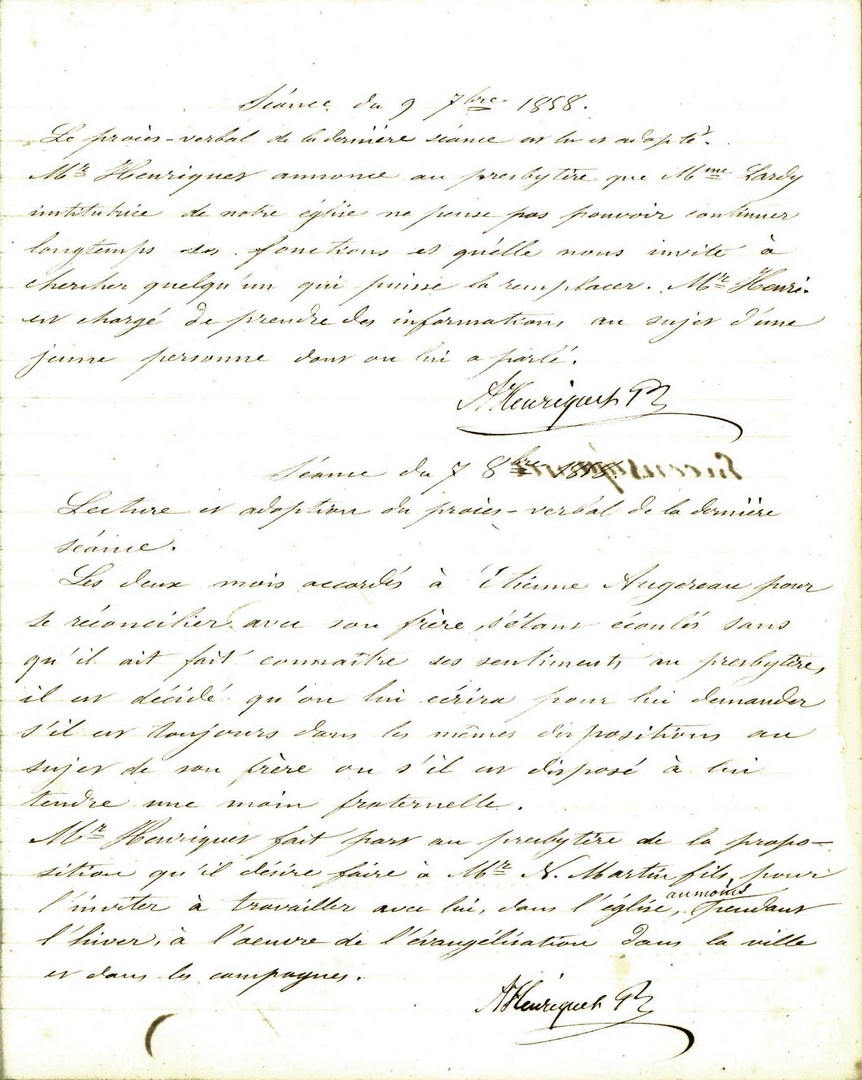 Séance du 9 7bre 1858.
Le procès-verbal de la dernière séance est lu et adopté.
Mr Henriquet annonce au presbytère que Mme Lardy
institutrice de notre église ne pense pas pouvoir continuer
longtemps ses fonctions et qu'elle nous invite à
chercher quelqu'un qui puisse la remplacer. Mr Henri.
est chargé de prendre des informations au sujet d'une
jeune personne dont on lui a parlé.
A. Henriquet
Séance du 7 8bre
Lecture et adoption du procès-verbal de la dernière
séance.
Les deux mois accordés à Etienne Augereau pour
se réconcilier avec son frère, s'étant écoulés sans
qu'il ait fait connaître ses sentiments au presbytère,
il est décidé qu'on lui écrira pour lui demander
s'il est toujours dans les mêmes dispositions au
sujet de son frère ou s'il est disposé à lui
tendre une main fraternelle.
Mr Henriquet fait part au presbytère de la propo-
sition qu'il désire faire à Mr N. Martin fils, pour
l'inviter à travailler avec lui, dans l'église, au moins pendant
l'hiver, à l'oeuvre de l'évangélisation dans la ville
et dans les campagnes.
A. Henriquet